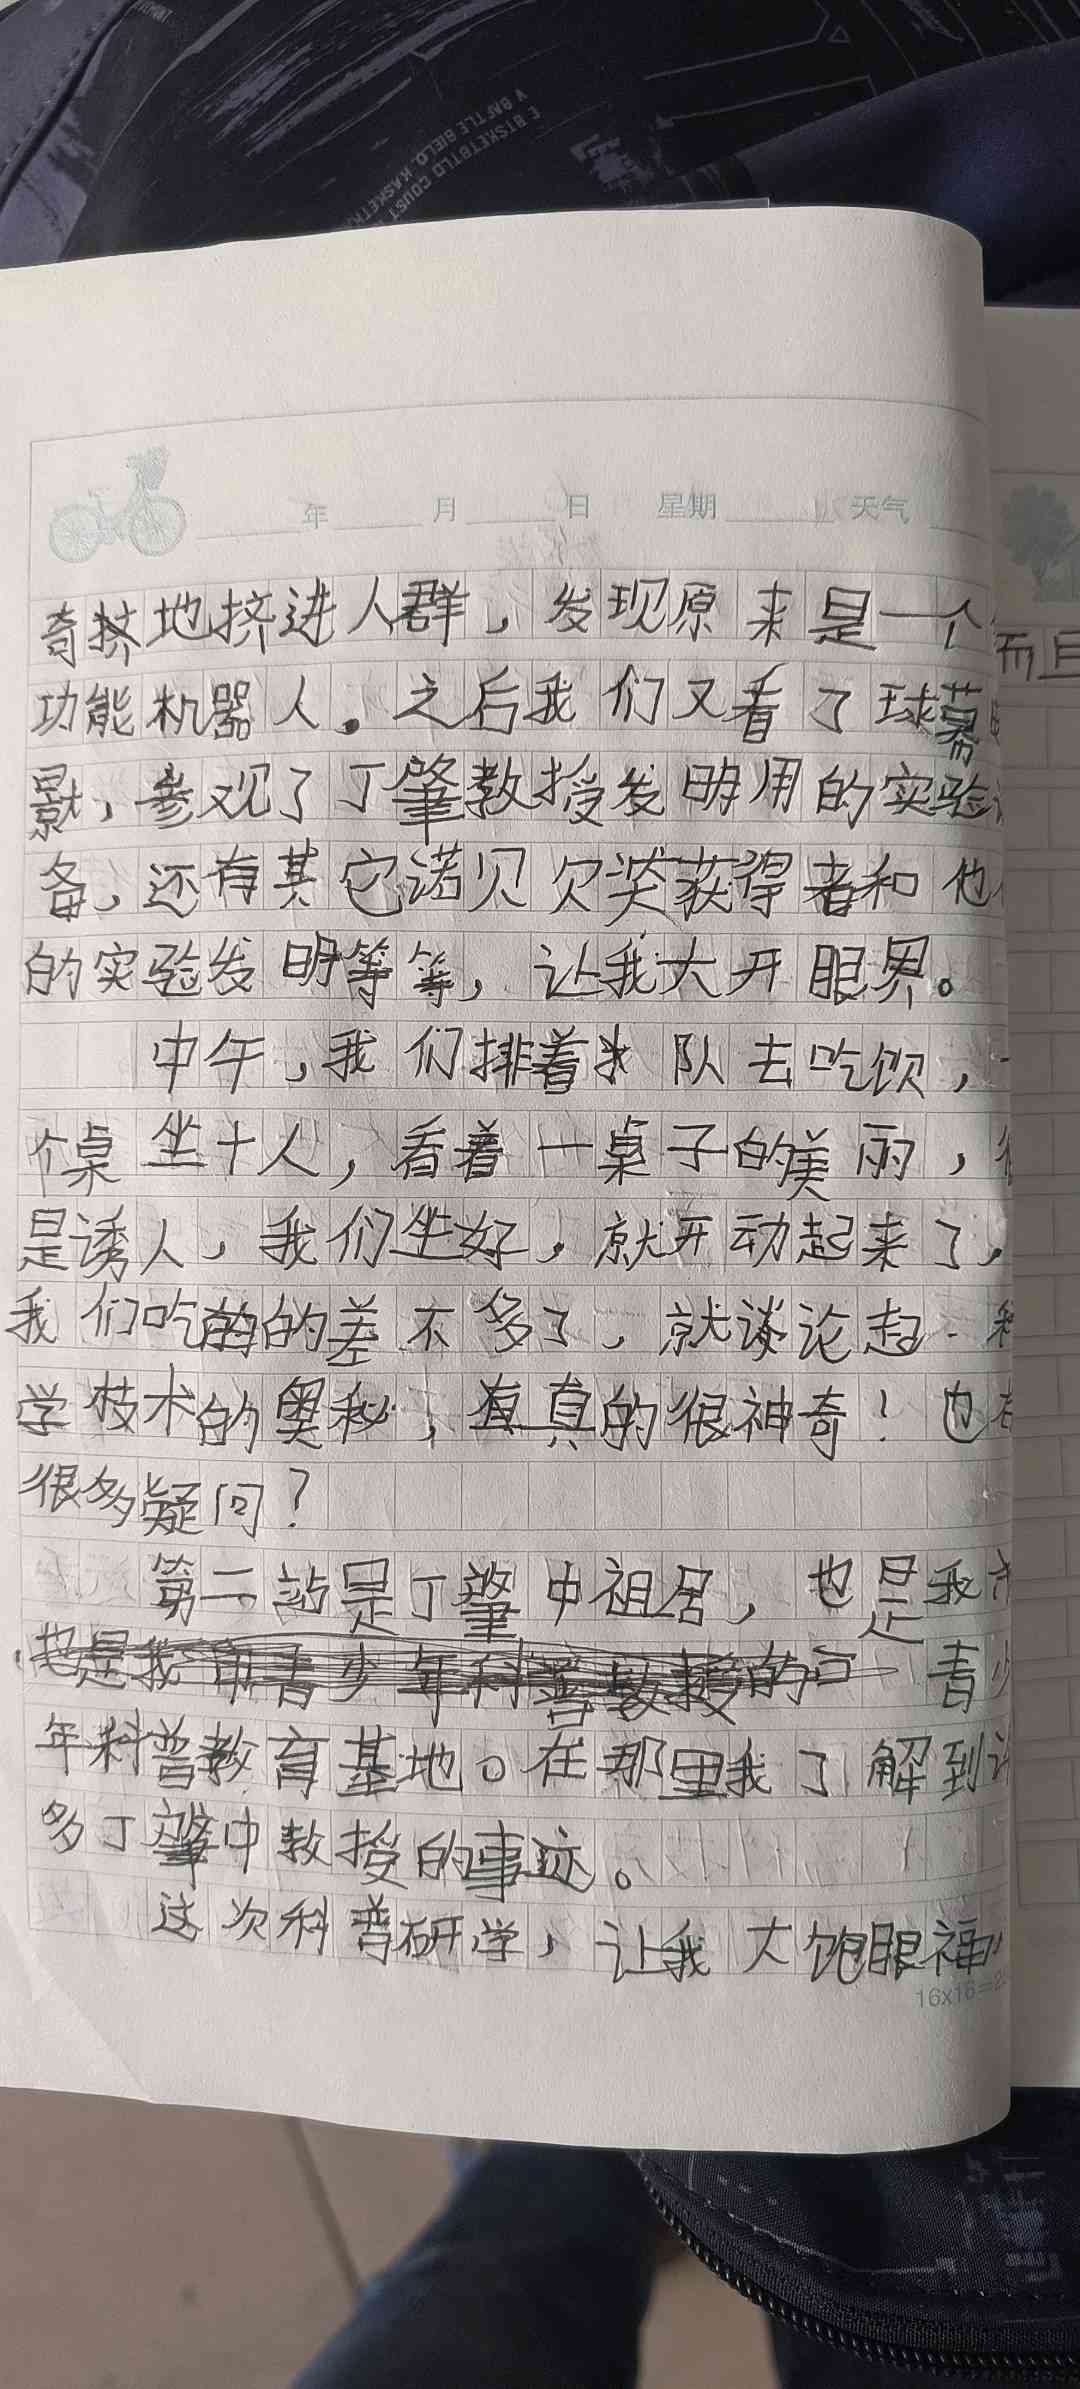 E BISKETBILD COUST
A BATTLE BIELD. KASKETH
年 月 日 星期 天气
奇挤地挤进人群，发现原来是一个
而且
功能机器人。之后我们又看了球幕
影，参观了丁肇教授发明用的实验
备，还有其它诺贝尔奖获得者和他
的实验发明等等，让我大开眼界。
中午，我们排着队去吃饮，一
个桌坐十人，看着一桌子的美丽，很
是诱人，我们坐好，就开动起来了，
我们吃的的差不多了，就谈论起科
学技术的奥秘，真的很神奇！也有
很多疑问？
第二站是丁肇中祖居，也是我市
也是我市青少年科普教授的 青少
年科普教育基地。在那里我了解到许
多丁肇中教授的事迹。
这次科普研学，让我大饱眼福
16x16=2